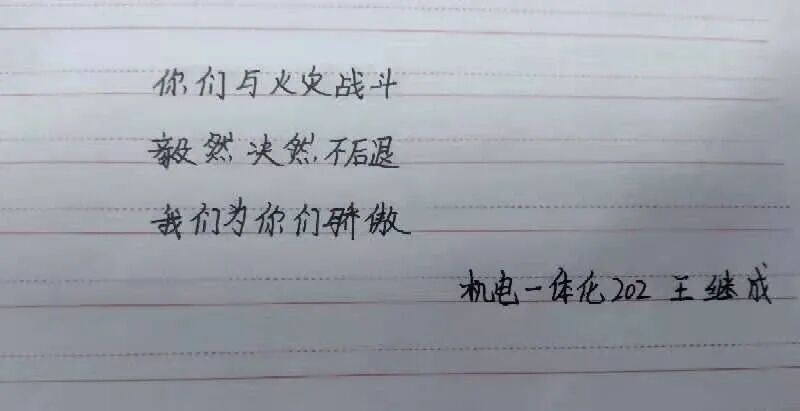 你们与火灾战斗
毅然决然不后退
我们为你们骄傲
机电一体化202 王继成